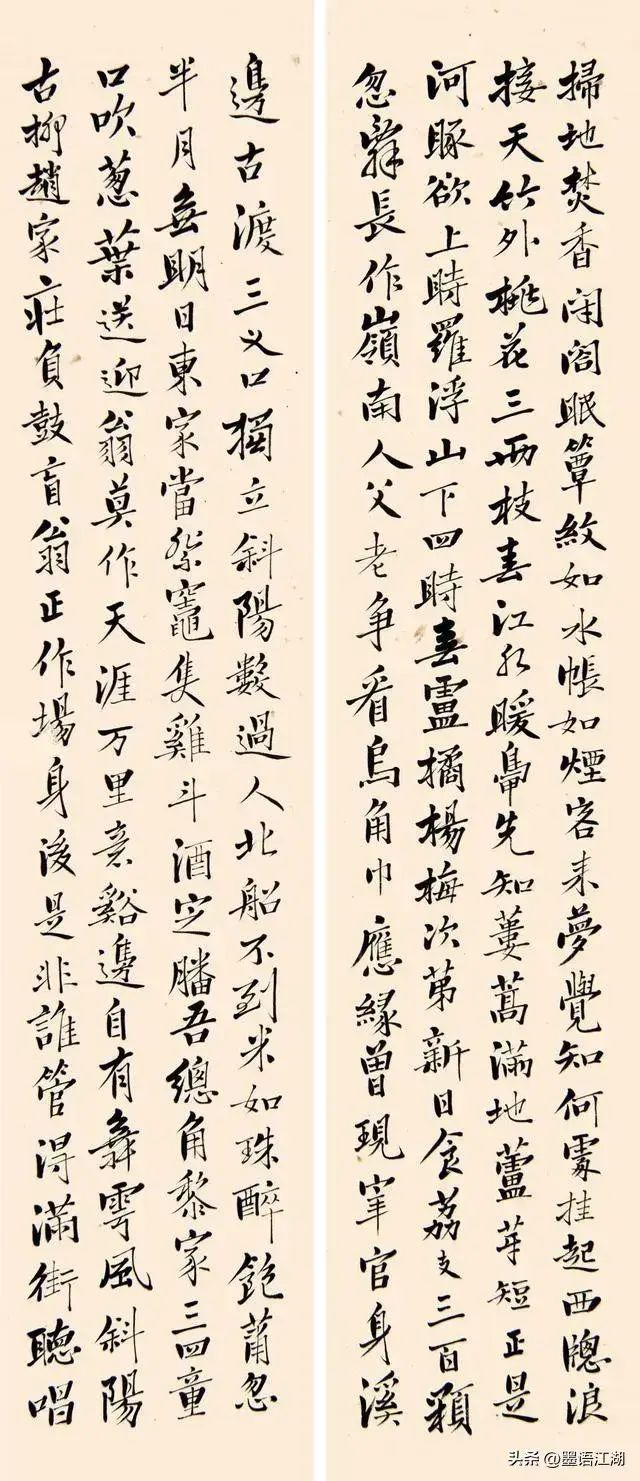 掃地焚香閉閤眠簟紋如水帳如煙客来夢覺知何處挂起西牕浪
接天竹外桃花三兩枝春江水暖鴨先知蔞蒿滿地蘆芽短正是
河豚欲上時羅浮山下四時春盧橘楊梅次第新日食荔支三百顆
忽辭長作嶺南人父老爭看烏角巾應緣曾現宰官身溪
邊古渡三叉口獨立斜陽數過人北船不到米如珠醉飽蕭忽
半月無明日東家當祭竈隻雞斗酒定膰吾總角黎家三四童
口吹蔥葉送迎翁莫作天涯万里意谿邊自有舞雩風斜陽
古柳趙家莊負鼓盲翁正作場身後是非誰管得滿街聽唱
头条 @墨语江湖